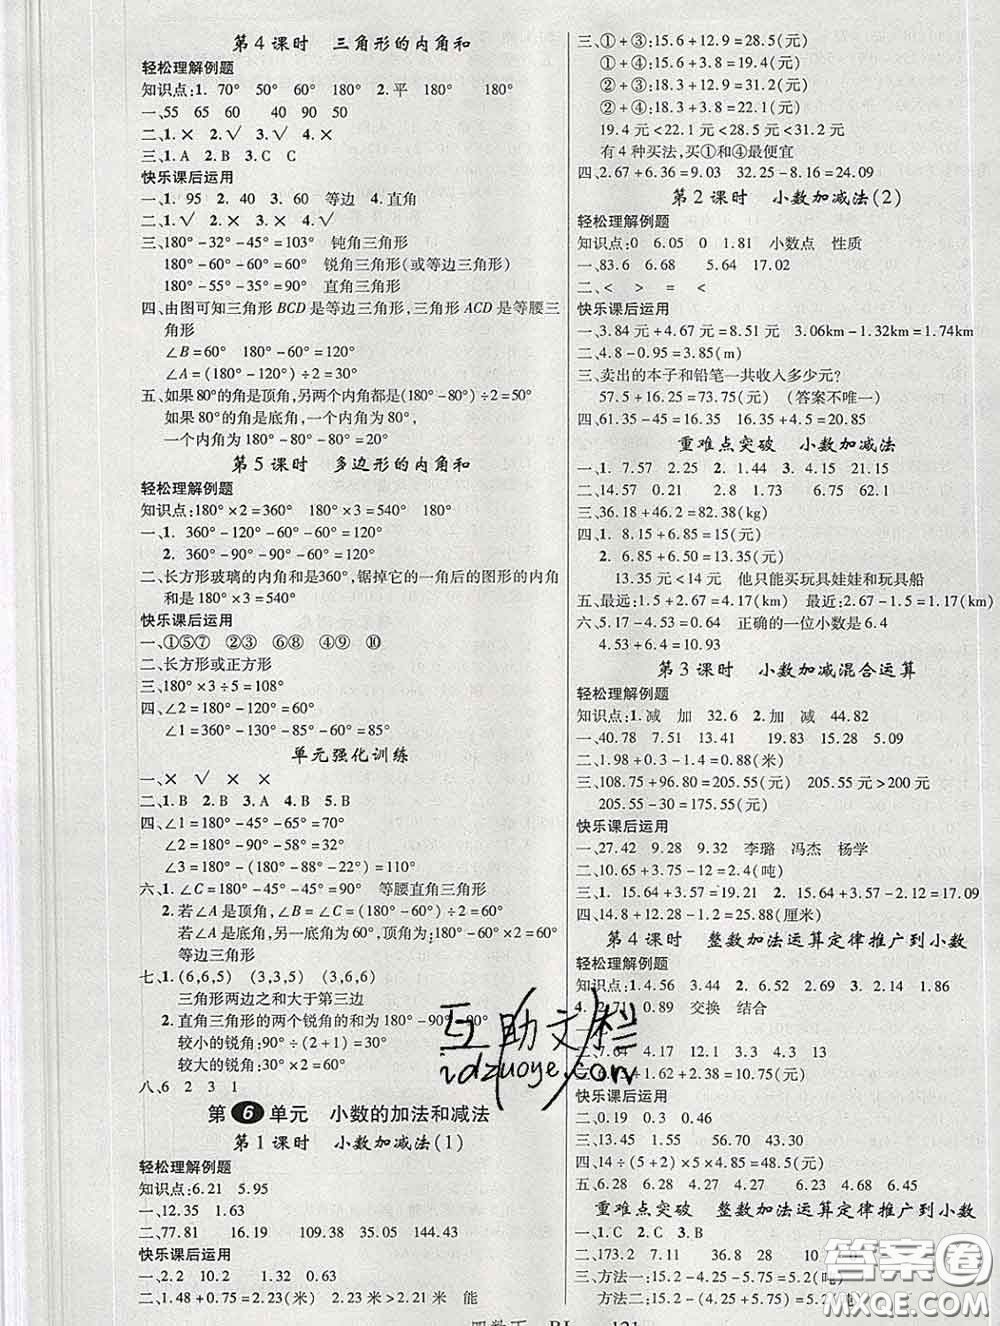 第4课时 三角形的内角和
轻松理解例题
知识点:1. 70° 50° 60° 180° 2.平 180° 180°
一、55 65 60 40 90 50
二、1.× 2.√ 3.√ 4.×
三、1.A 2.B 3.C C
快乐课后运用
一、1. 95 2. 40 3. 60 等边 4.直角
二、1.√ 2.× 3.× 4.√
三、180°-32°-45°=103° 钝角三角形
180°-60°-60°=60° 锐角三角形(或等边三角形)
180°-55°-35°=90° 直角三角形
四、由图可知三角形BCD是等边三角形,三角形ACD是等腰三
角形
∠B=60° 180°-60°=120°
∠A=(180°-120°)÷2=30°
五、如果80°的角是顶角,另两个内角都是(180°-80°)÷2=50°
如果80°的角是底角,一个内角为80°,
一个内角为180°-80°-80°=20°
第5课时 多边形的内角和
轻松理解例题
知识点:180°×2=360° 180°×3=540° 180°
一、1. 360°-120°-60°-60°=120°
2. 360°-90°-90°-60°=120°
二、长方形玻璃的内角和是360°,锯掉它的一角后的图形的内角
和是180°×3=540°
快乐课后运用
一、①⑤⑦ ②③ ⑥⑧ ④⑨ ⑩
二、长方形或正方形
三、180°×3÷5=108°
四、∠2=180°-120°=60°
∠1=360°-130°-85°-60°=85°
单元强化训练
一、× √ × ×
二、1.B 2.B 3.A 4.B 5.B
四、∠1=180°-45°-65°=70°
∠2=180°-90°-58°=32°
∠3=180°-(180°-88°-22°)=110°
六、1.∠C=180°-45°-45°=90° 等腰直角三角形
2.若∠A是顶角,∠B=∠C=(180°-60°)÷2=60°
若∠A是底角,另一底角为60°,顶角为:180°-60°×2=60°
等边三角形
七、1.(6,6,5) (3,3,5) (3,6,6)
三角形两边之和大于第三边
2.直角三角形的两个锐角的和为180°-90°=90°
较小的锐角:30°÷(2+1)=30°
较大的锐角:30°×2=60°
八、6 2 3 1
第6单元 小数的加法和减法
第1课时 小数加减法(1)
轻松理解例题
知识点:6.21 5.95
一、12.35 1.63
二、77.81 16.19 109.38 35.05 144.43
快乐课后运用
一、2.2 10.2 1.24 0.63
二、1.48+0.75=2.23(米) 2.23米>2.21米 能
三、①+③:15.6+12.9=28.5(元)
①+④:15.6+3.8=19.4(元)
②+③:18.3+12.9=31.2(元)
②+④:18.3+3.8=22.1(元)
19.4元<22.1元<28.5元<31.2元
有4种买法,买①和④最便宜
四、2.67+6.36=9.03 32.25-8.16=24.09
第2课时 小数加减法(2)
轻松理解例题
知识点:0 6.05 0 1.81 小数点 性质
一、83.6 6.68 5.64 17.02
二、< > = <
快乐课后运用
一、3.84元+4.67元=8.51元 3.06km-1.32km=1.74km
二、4.8-0.95=3.85(m)
三、卖出的本子和铅笔一共收入多少元?
57.5+16.25=73.75(元) (答案不唯一)
四、61.35-45=16.35 16.35+4.5=20.85
重难点突破 小数加减法
一、1. 7.57 2.25 2. 1.44 3. 4.15 21.15
二、14.57 0.21 2.8 1.73 6.75
三、36.18+46.2=82.38(kg)
四、1. 8.15+6.85=15(元)
2. 6.85+6.50=13.35(元)
13.35元<14元 他只能买玩具娃娃和玩具船
五、最远:1.5+2.67=4.17(km) 最近:2.67-1.5=1.17(km)
六、5.17-4.53=0.64 正确的一位小数是6.4
4.53+6.4=10.93
第3课时 小数加减混合运算
轻松理解例题
知识点:1.减 加 32.6 2.加 减 44.82
一、40.78 5.71 13.41 19.83 15.28 5.09
二、1.98+0.3-1.4=0.88(米)
三、108.75+96.80=205.55(元) 205.55元>200元
205.55-30=175.55(元)
快乐课后运用
一、27.42 9.28 9.32 李璐 冯杰 杨学
二、10.8+3.6-12=2.4(吨)
三、1. 15.64+3.57=19.21 2. 15.64+3.57+15.64-3.12=17.09
四、14.8+12.28-1.2=25.88(厘米)
第4课时 整数加法运算定律推广到小数
轻松理解例题
知识点:1. 4.56 3.44 2. 6.72 3. 2.14 1.86
4. 2.71 0.89 交换 结合
二、7.64 4.17 12.3 4.3 13
快乐课后运用
二、0.19 0.3 0.46
三、52.45 1.55 56.70 43.30
四、14÷(5+2)×5×4.85=48.5(元)
五、6.28 6.28 4.35 4.35
重难点突破 整数加法运算定律推广到小数
一、1.C 2.C 3.B
二、173.2 7.11 36.8 28 10
三、方法一:15.2-4.25-5.75=5.2(吨)
方法二:15.2-(4.25+5.75)=5.2
互助文档
idzuoye.com
答案圈
MXQE.COM